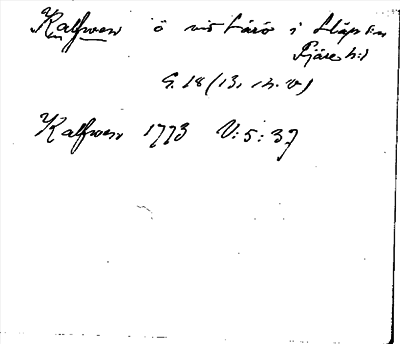 Kalfwen ö vid Lärö i Släps sn
Fjäre hd
G. 18 (13, 14. V)
Kalfwen 1773 V: 5: 37